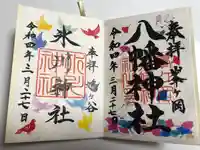 奉拝 峯ヶ岡
八幡神社
令和四年三月二十七日
奉拝 鳩ヶ谷
氷川神社
令和四年三月二十七日